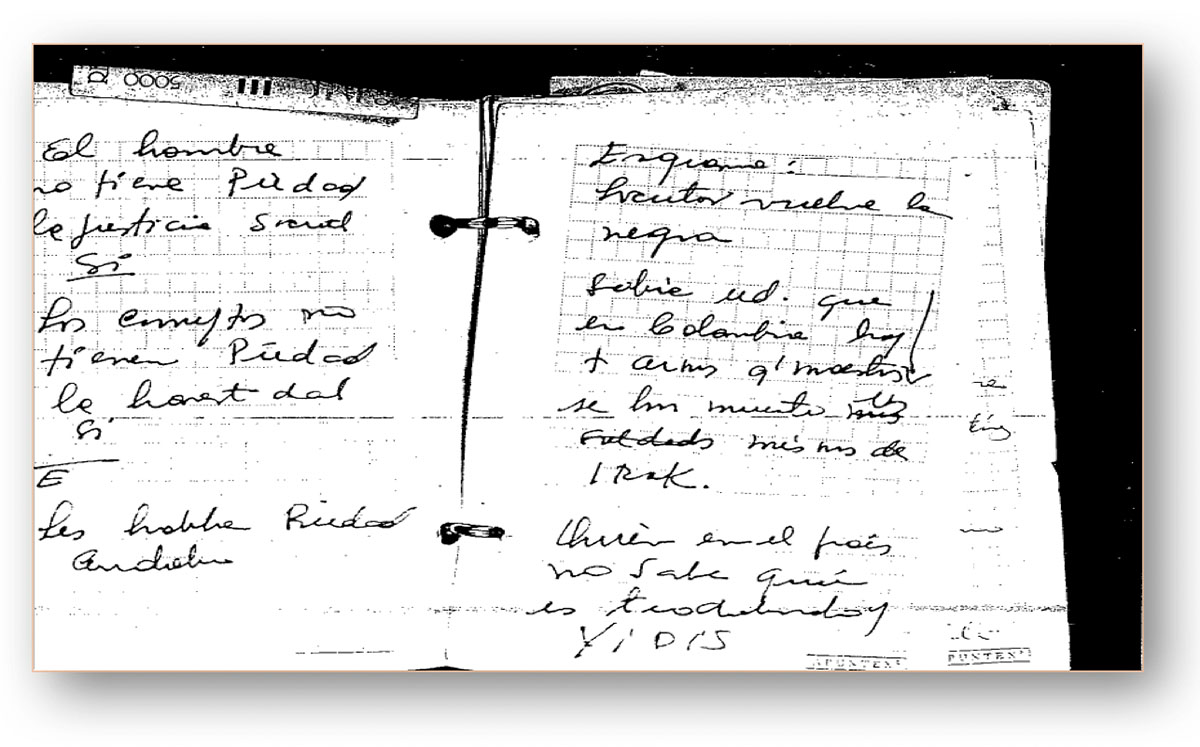 5000
El hombre
no tiene Piedad
la justicia Social
Si
Los corruptos no
tienen Piedad
la honestidad
Si
E
Les habla Piedad
Esquema:
locutor vuelve la
negra
Sabie ud. que
en Colombia hay
+ armas q' maestros
se han muerto
soldados mismos de
IRAK.
Quién en el país
no sabe quién
es teodolindo y
YIDIS
APUNTES
PUNTES